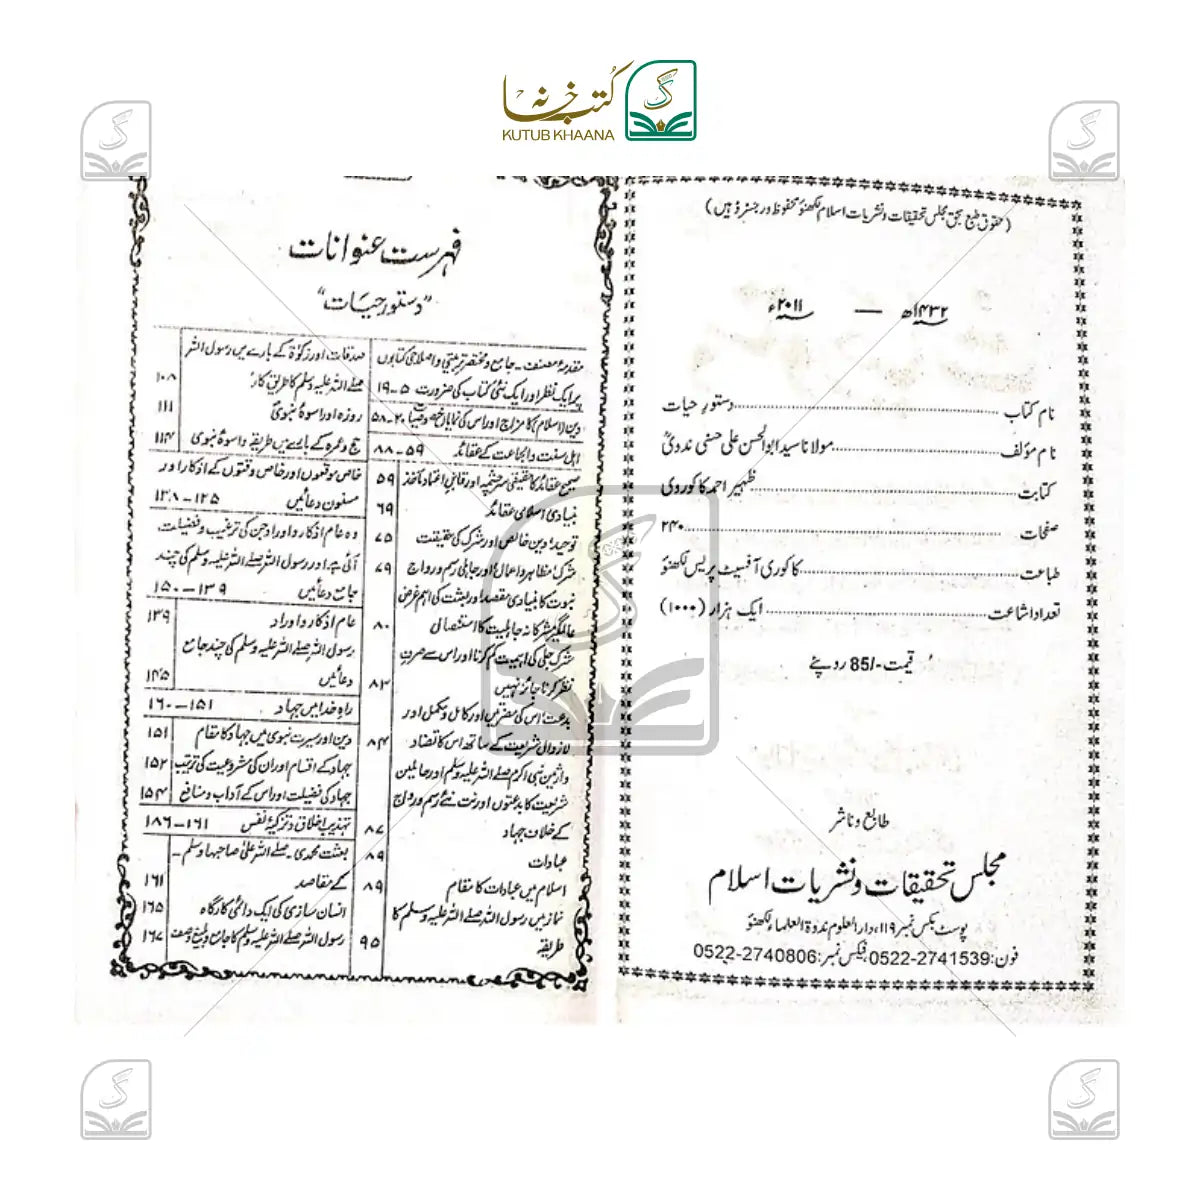 کتب خانہ
KUTUB KHAANA
(حقوق طبع بحق مجلس تحقیقات ونشریات اسلام لکھنؤ محفوظ ورجسٹرڈ ہیں)
۱۴۳۲ھ — ۲۰۱۱ء
نام کتاب دستورِ حیات
نام مؤلف مولانا سید ابوالحسن علی حسنی ندویؒ
کتابت ظہیر احمد کاکوروی
صفحات ۲۴۰
طباعت کاکوری آفسیٹ پریس لکھنؤ
تعداد اشاعت ایک ہزار (۱۰۰۰)
قیمت -/85 روپئے
طابع وناشر
مجلس تحقیقات ونشریات اسلام
پوسٹ بکس نمبر ۱۱۹، دارالعلوم ندوۃ العلماء لکھنؤ
فون: 2741539-0522، فیکس نمبر: 2740806-0522
فہرست عنوانات
"دستور حیات"
مقدمۂ مصنف - جامع و مختصر تربیتی و اصلاحی کتابوں
پر ایک نظر اور ایک نئی کتاب کی ضرورت ۵-۱۹
دین (اسلام) کا مزاج اور اس کی نمایاں خصوصیات ۲۰-۵۸
اہل سنت والجماعت کے عقائد ۵۹-۸۸
صحیح عقائد کا حقیقی سرچشمہ اور قابلِ اعتماد ماخذ ۵۹
بنیادی اسلامی عقائد ۶۹
توحید؛ دین خالص اور شرک کی حقیقت ۷۵
شرک؛ مظاہر و اعمال اور جاہلی رسم و رواج ۷۹
نبوت کا بنیادی مقصد اور بعثت کی اہم غرض
عالمگیر مشرکانہ جاہلیت کا استیصال ۸۰
شرک جلی کی اہمیت کم کرنا اور اس سے صرفِ
نظر کرنا جائز نہیں ۸۳
بدعت؛ اس کی مضرتیں اور کامل و مکمل اور
لازوال شریعت کے ساتھ اس کا تضاد ۸۴
وارثین نبی اکرم صلے اللہ علیہ وسلم اور حاملین
شریعت کا بدعتوں اور نت نئے رسم و رواج
کے خلاف جہاد ۸۷
عبادات ۸۹
اسلام میں عبادات کا مقام ۸۹
نماز میں رسول اللہ صلے اللہ علیہ وسلم کا
طریقہ ۹۵
صدقات اور زکوٰۃ کے بارے میں رسول اللہ
صلے اللہ علیہ وسلم کا طریق کار ۱۰۸
روزہ اور اسوۂ نبویؐ ۱۱۱
حج و عمرہ کے بارے میں طریقہ و اسوۂ نبوی ۱۱۴
خاص موقعوں اور خاص وقتوں کے اذکار اور
مسنون دعائیں ۱۲۵-۱۳۸
وہ عام اذکار و اوراد جن کی ترغیب و فضیلت
آئی ہے، اور رسول اللہ صلے اللہ علیہ وسلم کی چند
جامع دعائیں ۱۳۹-۱۵۰
عام اذکار و اوراد ۱۳۹
رسول اللہ صلے اللہ علیہ وسلم کی چند جامع
دعائیں ۱۴۵
راہِ خدا میں جہاد ۱۵۱-۱۶۰
دین اور سیرت نبوی میں جہاد کا مقام ۱۵۱
جہاد کے اقسام اور ان کی مشروعیت کی ترتیب ۱۵۲
جہاد کی فضیلت اور اس کے آداب و منافع ۱۵۴
تہذیب اخلاق و تزکیۂ نفس ۱۶۱-۱۸۶
بعثت محمدی - صلے اللہ علیٰ صاحبہا وسلم -
کے مقاصد ۱۶۱
انسان سازی کی ایک دائمی کارگاہ ۱۶۵
رسول اللہ صلے اللہ علیہ وسلم کا جامع و بلیغ وصف ۱۶۷